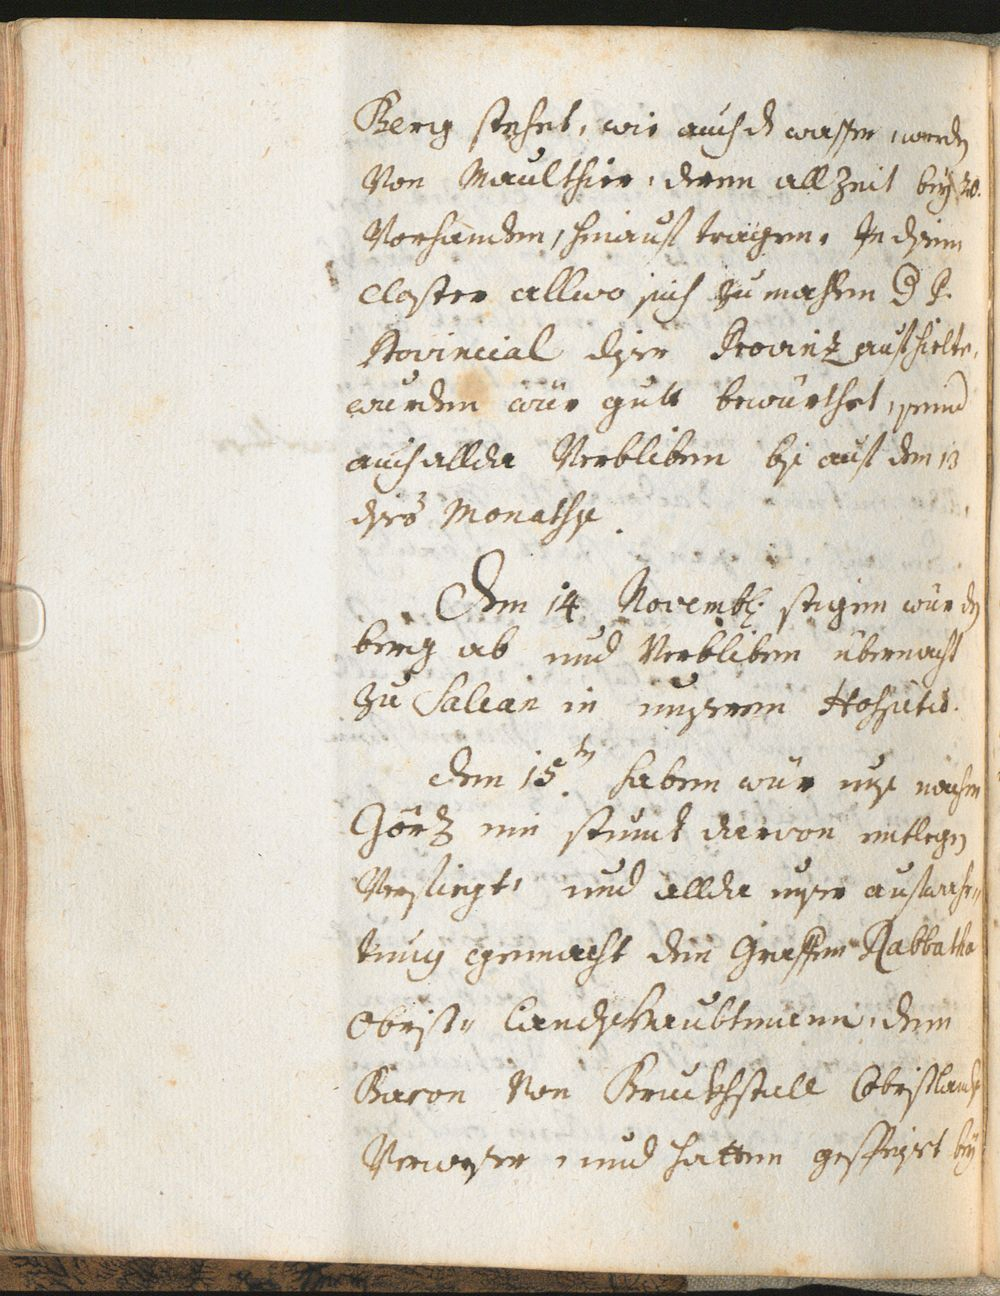 Berg stehet, wie auch d wasser, werdn
Von Maulthier, deren all Zeit bey 20.
Vorhanden, hinauß tragen. In disem
Closter allwo sich zumahlen P.
Provincial diser Provintz aufhielte,
wurden wür gutt bewürthet, seind
auch allda Verbliben biß auf den 13
dises Monaths.
Den 14 Novemb: stigen wür den
berg ab und Verbliben übernacht
zu Salcan in unserem Hospitio.
Den 15.ten haben wür unß nacher
Görz ein stund darvon entlegen
Verfüegt, und allda unser aufwar-
tung gemacht dem Graffen Rabbatha
Obrist- Landshaubtmann, dem
Baron Von Obristlands
Verweser, und hatten gespeist bey